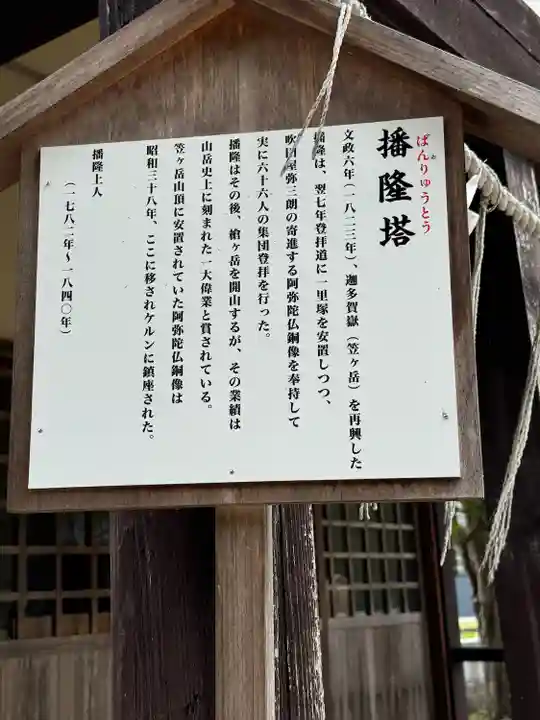 ばんりゅうとう
播隆塔
文政六年（一八二三年）、迦多賀嶽（笠ヶ岳）を再興した
播隆は、翌七年登拝道に一里塚を安置しつつ、
吹田屋弥三朗の寄進する阿弥陀仏銅像を奉持して
実に六十六人の集団登拝を行った。
播隆はその後、槍ヶ岳を開山するが、その業績は
山岳史上に刻まれた一大偉業と賞されている。
笠ヶ岳山頂に安置されていた阿弥陀仏銅像は
昭和三十八年、ここに移されケルンに鎮座された。
播隆上人
（一七八二年～一八四〇年）